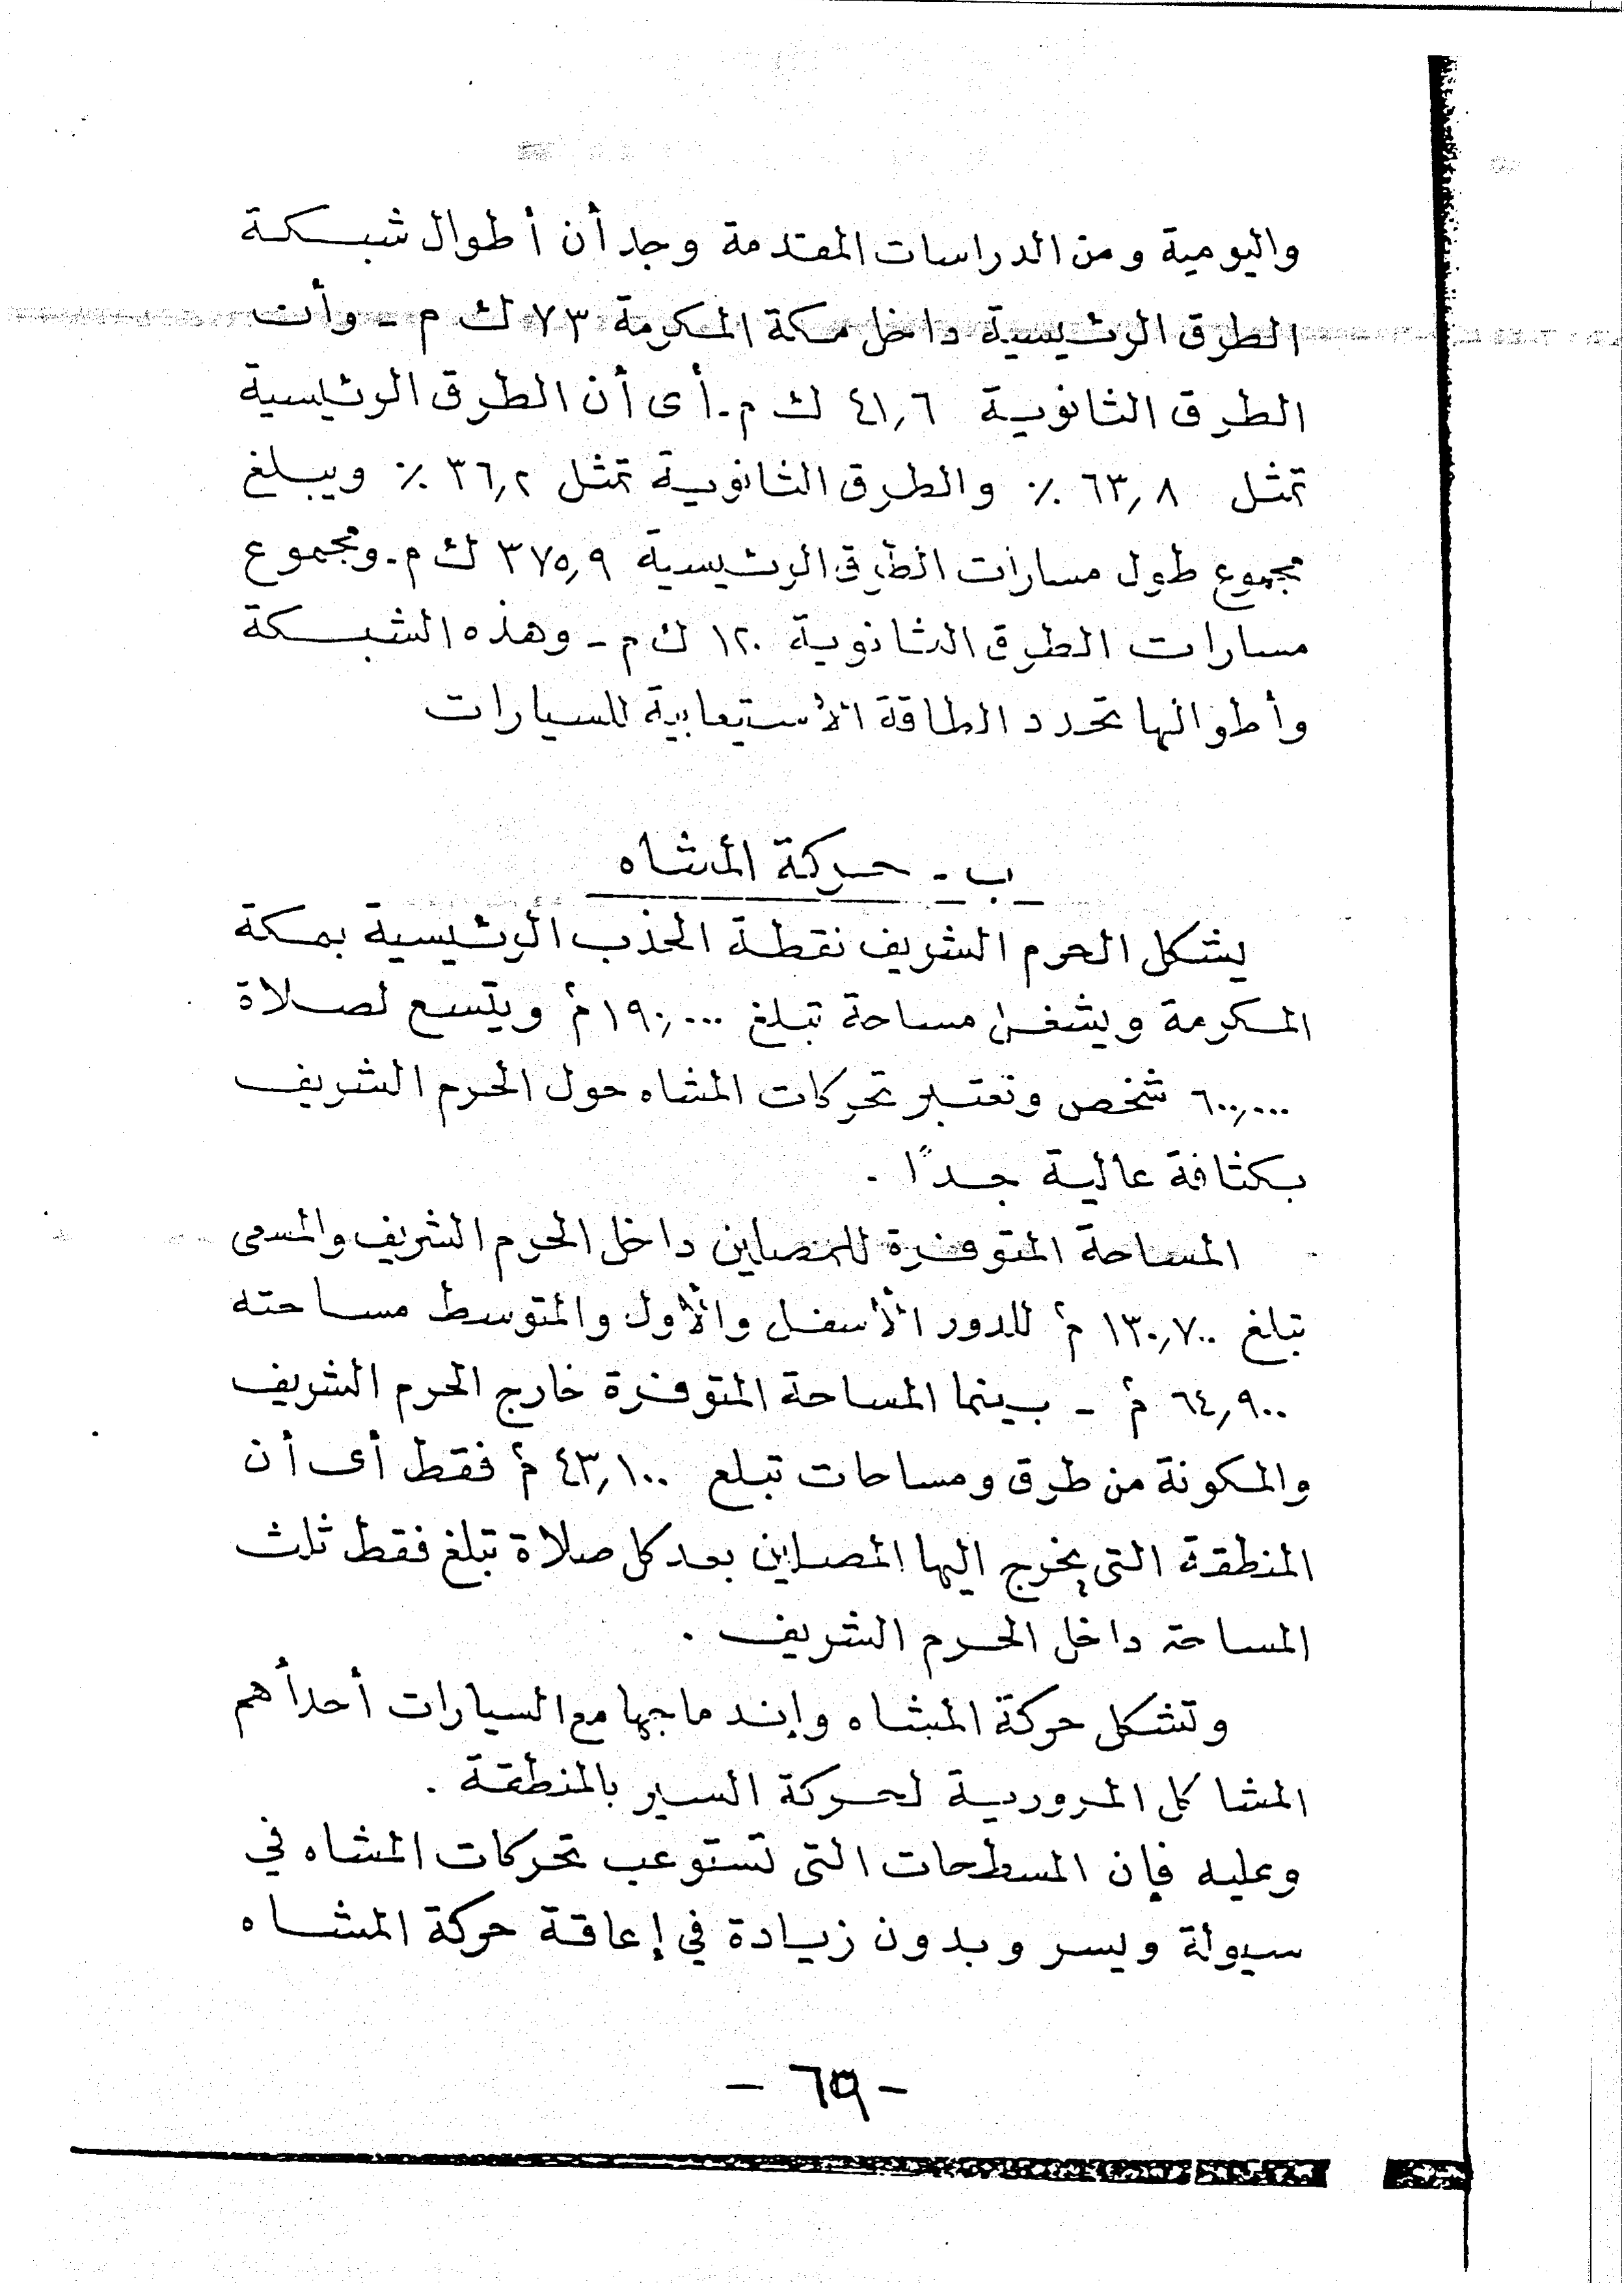 واليومية ومن الدراسات المقدمة وجد أن أطوال شبكة
الطرق الرئيسية داخل مكة المكرمة ٧٣ ك م - وأن
الطرق الثانوية ٤١٫٦ ك م - أى أن الطرق الرئيسية
تمثل ٦٣٫٨ ٪ والطرق الثانوية تمثل ٣٦٫٢ ٪ ويبلغ
مجموع طول مسارات الطرق الرئيسية ٣٧٥٫٩ ك م - ومجموع
مسارات الطرق الثانوية ١٢٠ ك م - وهذه الشبكة
وأطوالها تحدد الطاقة الأستيعابية للسيارات
ب - حركة المشاه
يشكل الحرم الشريف نقطة الجذب الرئيسية بمكة
المكرمة ويشغل مساحة تبلغ ١٩٠٫٠٠٠ م٢ ويتسع لصلاة
٦٠٠٫٠٠٠ شخص وتعتبر تحركات المشاه حول الحرم الشريف
بكثافة عالية جدًا .
المساحة المتوفرة للمصلين داخل الحرم الشريف والمسعى
تبلغ ١٣٠٫٧٠٠ م٢ للدور الأسفل والأول والمتوسط مساحته
٦٤٫٩٠٠ م٢ - بينما المساحة المتوفرة خارج الحرم الشريف
والمكونة من طرق ومساحات تبلع ٤٣٫١٠٠ م٢ فقط أى أن
المنطقة التى يخرج اليها المصلين بعد كل صلاة تبلغ فقط ثلث
المساحة داخل الحرم الشريف .
وتشكل حركة المشاه وإندماجها مع السيارات أحد أهم
المشاكل المرورية لحركة السير بالمنطقة .
وعليه فإن المسطحات التى تستوعب تحركات المشاه في
سيولة ويسر وبدون زيادة في إعاقة حركة المشاه
- ٦٩ -